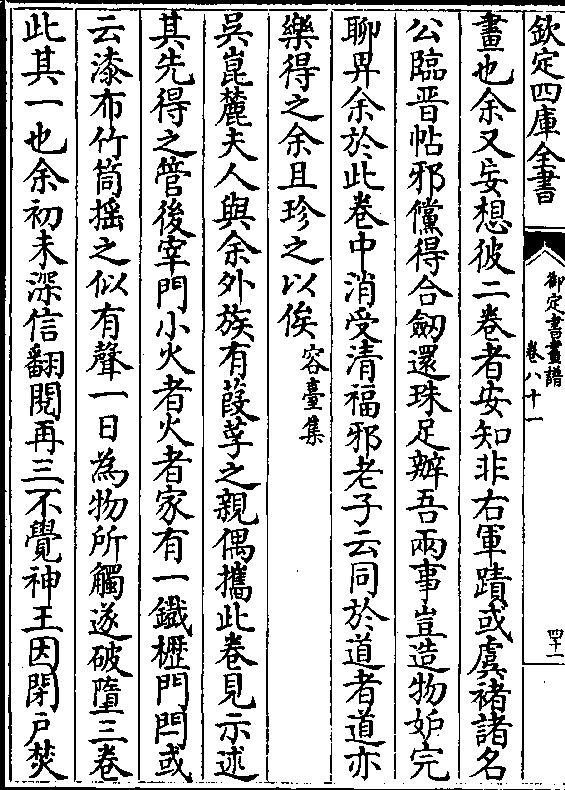 欽定四庫全書
御定書畫譜
卷八十一
四十一
畫也余又妄想彼二卷者安知非右軍蹟或虞褚諸名
公臨晉帖邪儻得合劒還珠足辦吾兩事豈造物妒完
聊畀余於此卷中消受清福邪老子云同於道者道亦
樂得之余且珍之以俟容臺集
吳崑麓夫人與余外族有葭莩之親偶攜此卷見示述
其先得之管後宰門小火者火者家有一鐵櫪門閂或
云漆布竹筒搖之似有聲一日為物所觸遂破墮三卷
此其一也余初未深信翻閱再三不覺神王因閉户焚